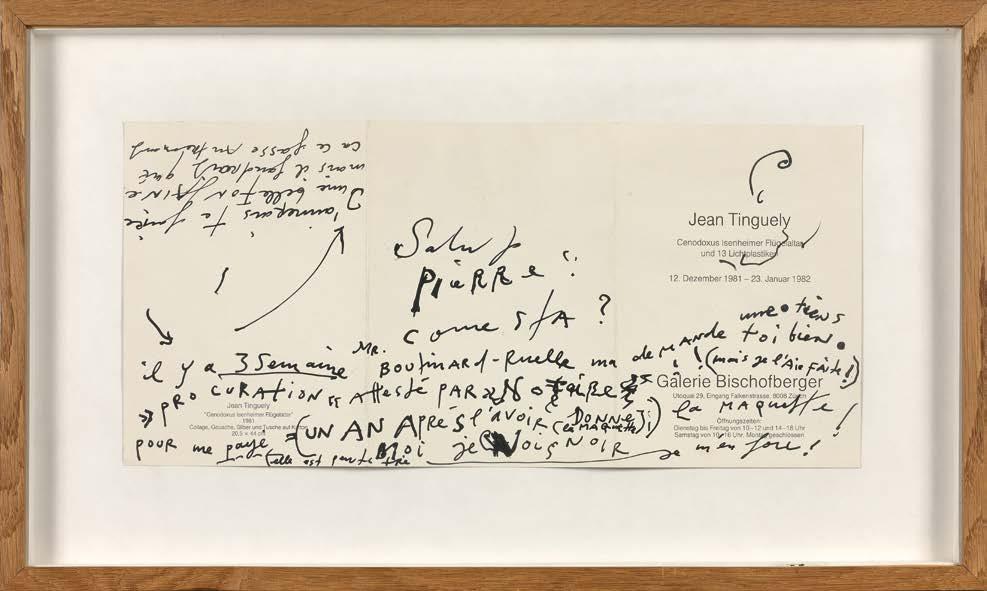 J'aimerais te faire
d'une belle FONTAINE
mais il faudrait que
ça ce fasse
Salut
PieRRe !
come stA ?
Jean Tinguely
Cenodoxus Isenheimer Flügelaltar
und 13 Lichtplastiken
12. Dezember 1981 – 23. Januar 1982
il y a 3 Semaine MR. BOUTINARD-Ruelle ma deMANde une tiens toi bien.
PROCURATION ET AttesTé PAR NOTAIRE (mais je l'Ai FAite!)
Galerie Bischofberger
Utoquai 29, Eingang Falkenstrasse, 8008 Zürich
Öffnungszeiten:
Dienstag bis Freitag von 10–12 und 14–18 Uhr
Samstag von 10–16 Uhr, Montag geschlossen
Jean Tinguely
"Cenodoxus Isenheimer Flügelaltar"
1981
Collage, Gouache, Silber und Tusche auf Karton
20,5 × 44 cm
pour me paye (UN AN APRéS l'Avoir DONNEZ (la MAQuette)!) la MAQuette !
(elle est partie MOi je Vois NOIR je m'en fou !